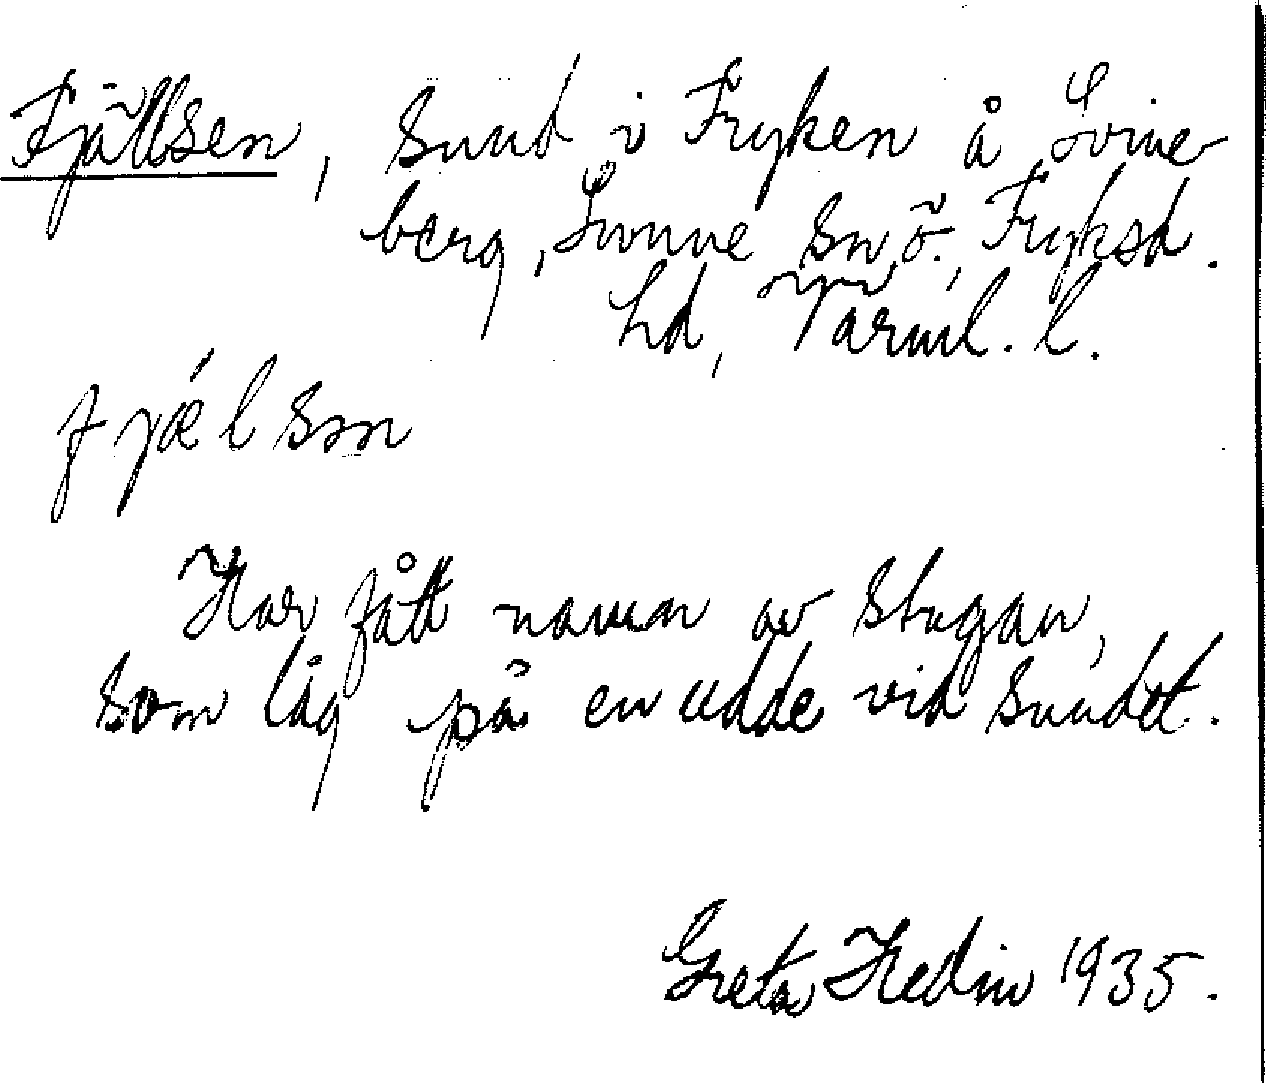 Fjällsen, Sund i Fryken å Svine-
berg, Sunne sn, ö., Fryksd.
hd, Värml. l.
fjǽlsən
Har fått namn av stugan,
som låg på en udde vid sundet.
Greta Hedin 1935.